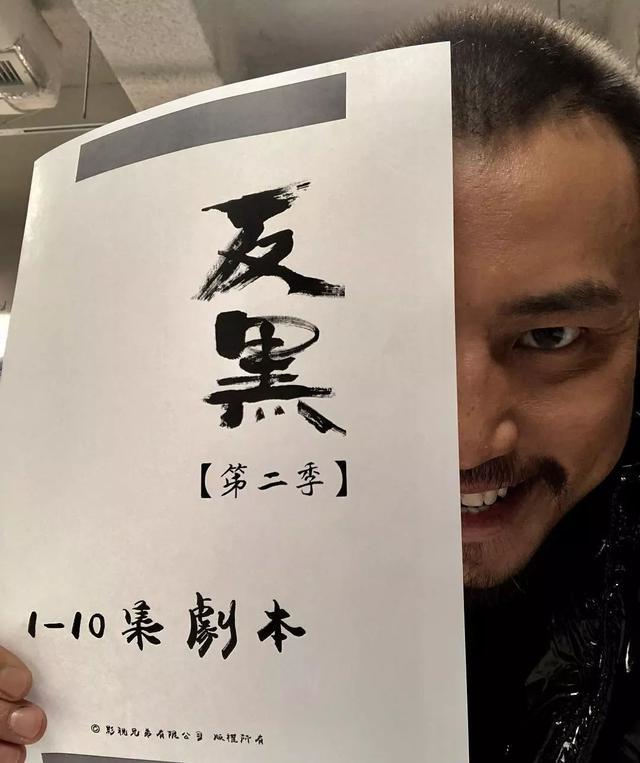 反
黑
【第二季】
1-10集劇本
© 影視兄弟有限公司 版權所有